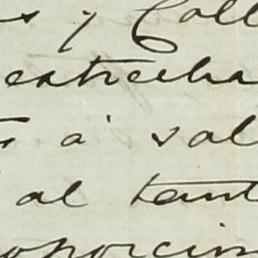 s y Coll
estrecha
s á sal
al tant
oporcion